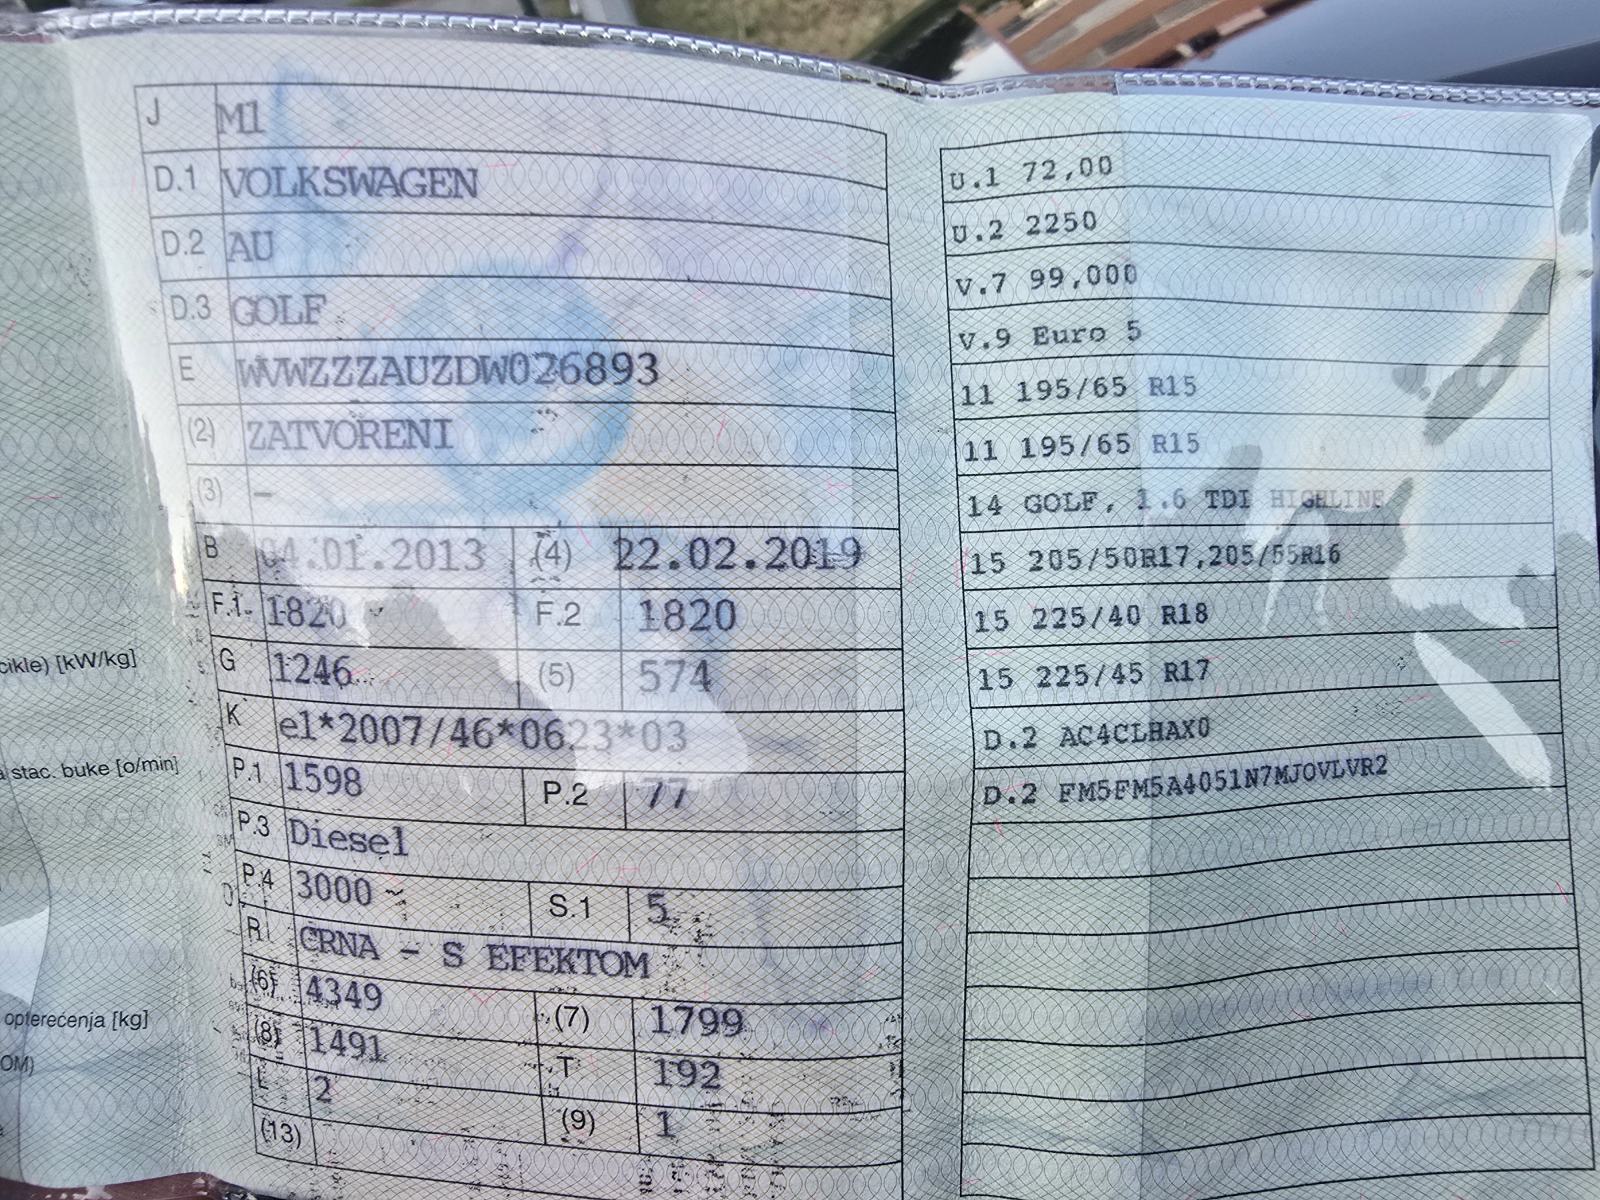 J M1
D.1 VOLKSWAGEN
D.2 AU
D.3 GOLF
E WVWZZZAUZDW026893
(2) ZATVORENI
(3) –
B 04.01.2013 (4) 22.02.2019
F.1 1820 F.2 1820
G 1246 (5) 574
K e1*2007/46*0623*03
P.1 1598 P.2 77
P.3 Diesel
P.4 3000 S.1 5
R CRNA – S EFEKTOM
(6) 4349 (7) 1799
(8) 1491 T 192
L 2 (9) 1
(13)
U.1 72,00
U.2 2250
V.7 99,000
V.9 Euro 5
11 195/65 R15
11 195/65 R15
14 GOLF, 1.6 TDI HIGHLINE
15 205/50R17,205/55R16
15 225/40 R18
15 225/45 R17
D.2 AC4CLHAX0
D.2 FM5FM5A4051N7MJOVLVR2
cikle) [kW/kg]
stac. buke [o/min]
opterećenja [kg]
OM)